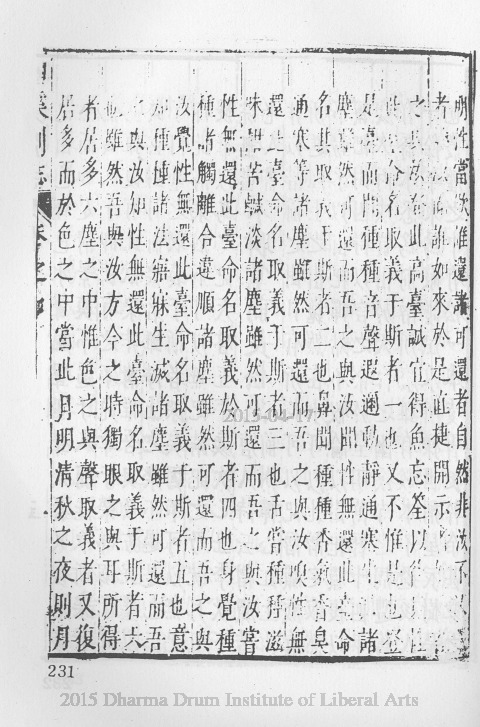 明性當欲誰還諸可還者自然非汝不
者非汝而誰如來於是直捷開示
之與汝登此高臺誠宜得魚忘筌以
此臺命名取義于斯者一也又不惟是也登
是臺而聞種種音聲遐邇動靜通塞生滅諸
塵雖然可還而吾之與汝聞性無還此臺命
名其取義于斯者二也鼻聞種種香氣香臭
通塞等諸塵雖然可還而吾之與汝嗅性無
還此臺命名取義于斯者三也舌嘗種種滋
味甜苦鹹淡諸塵雖然可還而吾之與汝嘗
性無還此臺命名取義於斯者四也身覺種
種諸觸離合違順諸塵雖然可還而吾之與
汝覺性無還此臺命名取義于斯者五也意
知種種諸法寤寐生滅諸塵雖然可還而吾
之與汝知性無還此臺命名取義于斯者六
也雖然吾與汝方今之時獨眼之與耳所得
者居多六塵之中惟色之與聲取義者又復
居多而於色之中當此月明清秋之夜則月
溪別志
卷之
231
2015 Dharma Drum Institute of Liberal Arts